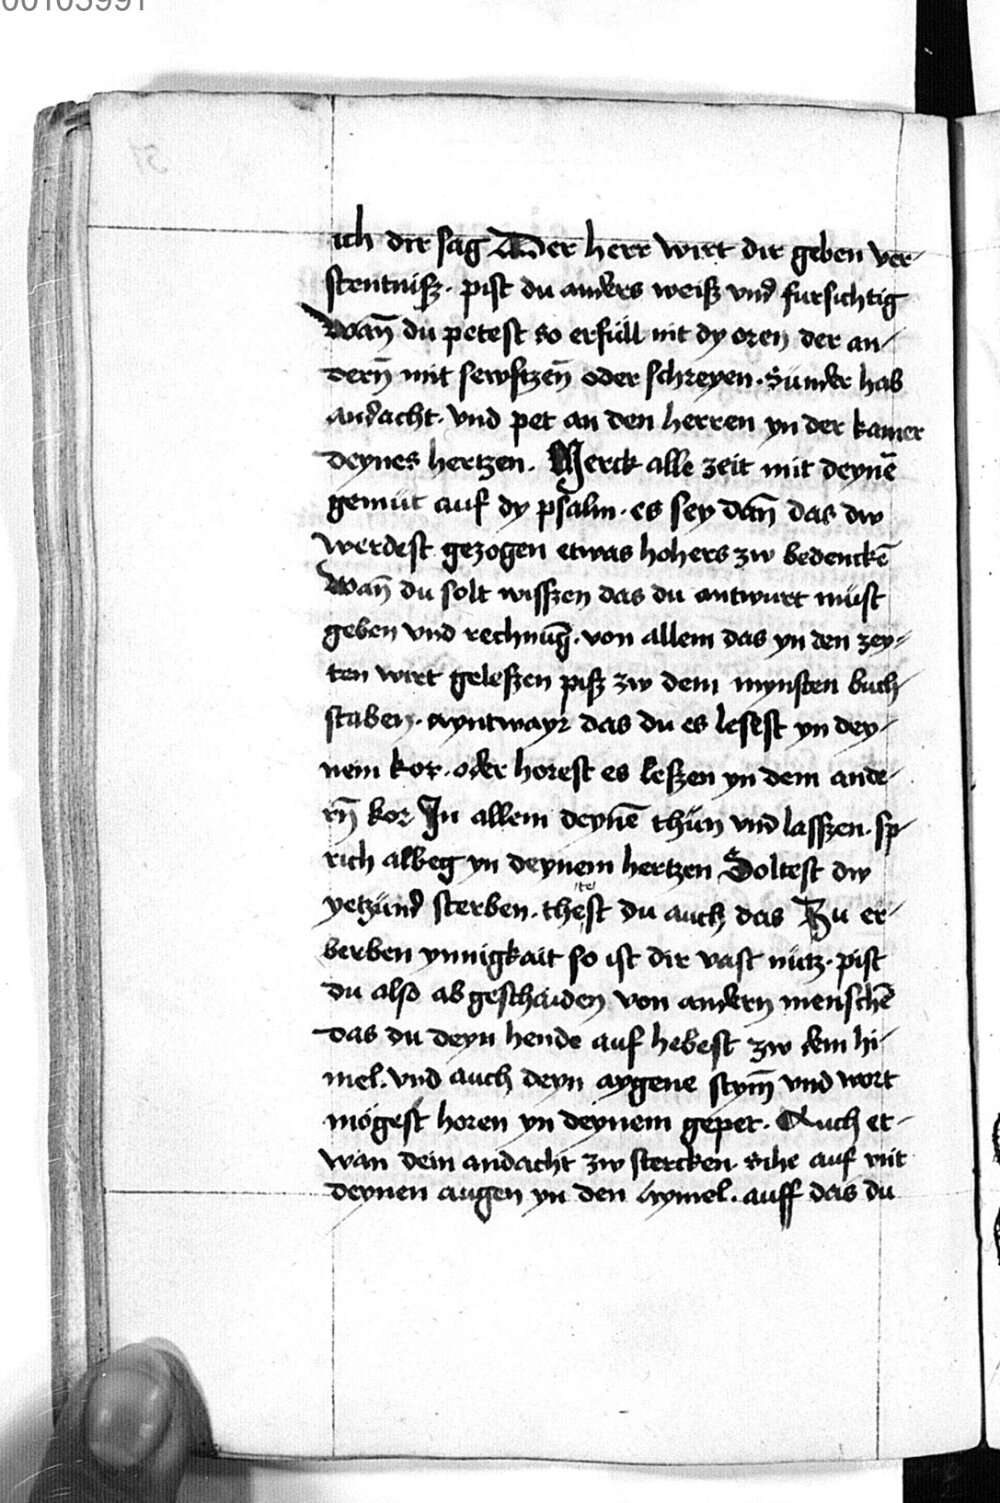 00103991
ich dir sag Wan der herr wirt dir geben ver-
stentnisz. pist du anders weisz vnd fursichtig
Wan̄ du petest so erfüll nit dy oren der an-
dern̄ mit sewftzen̄ oder schreyen. Sünder hab
andacht. vnd pet an den herren yn der kamer
deynes hertzen. Merck alle zeit mit deynē
gemüt auf dy psalm. es sey dan̄ das dw
werdest gezogen etwas hohers zw bedenckē
Wan̄ du solt wisszen das du antwurt müst
geben vnd rechnūg. von allem das yn den zey-
ten wirt geleszen pisz zw dem mynsten buch-
staben. ayntwayr das du es lesest yn dey-
nem kor. oder horest es leszen yn dem ande-
rn̄ kor In allem deynē thün vnd lasszen. sp-
rich albeg yn deynem hertzen Soltest dw
yetzünd sterben. thetest du auch das Zu er-
berben ynnigkait so ist dir vast nütz. pist
du also abgeschaiden von andern menschē
das du deyn hende auf hebest zw dem hi-
mel. vnd auch deyn aygene stym̄ vnd wort
mögest horen yn deynem gepet. Auch et-
wan dein andacht zw stercken. sihe auf mit
deynen augen yn den hymel. auff das du